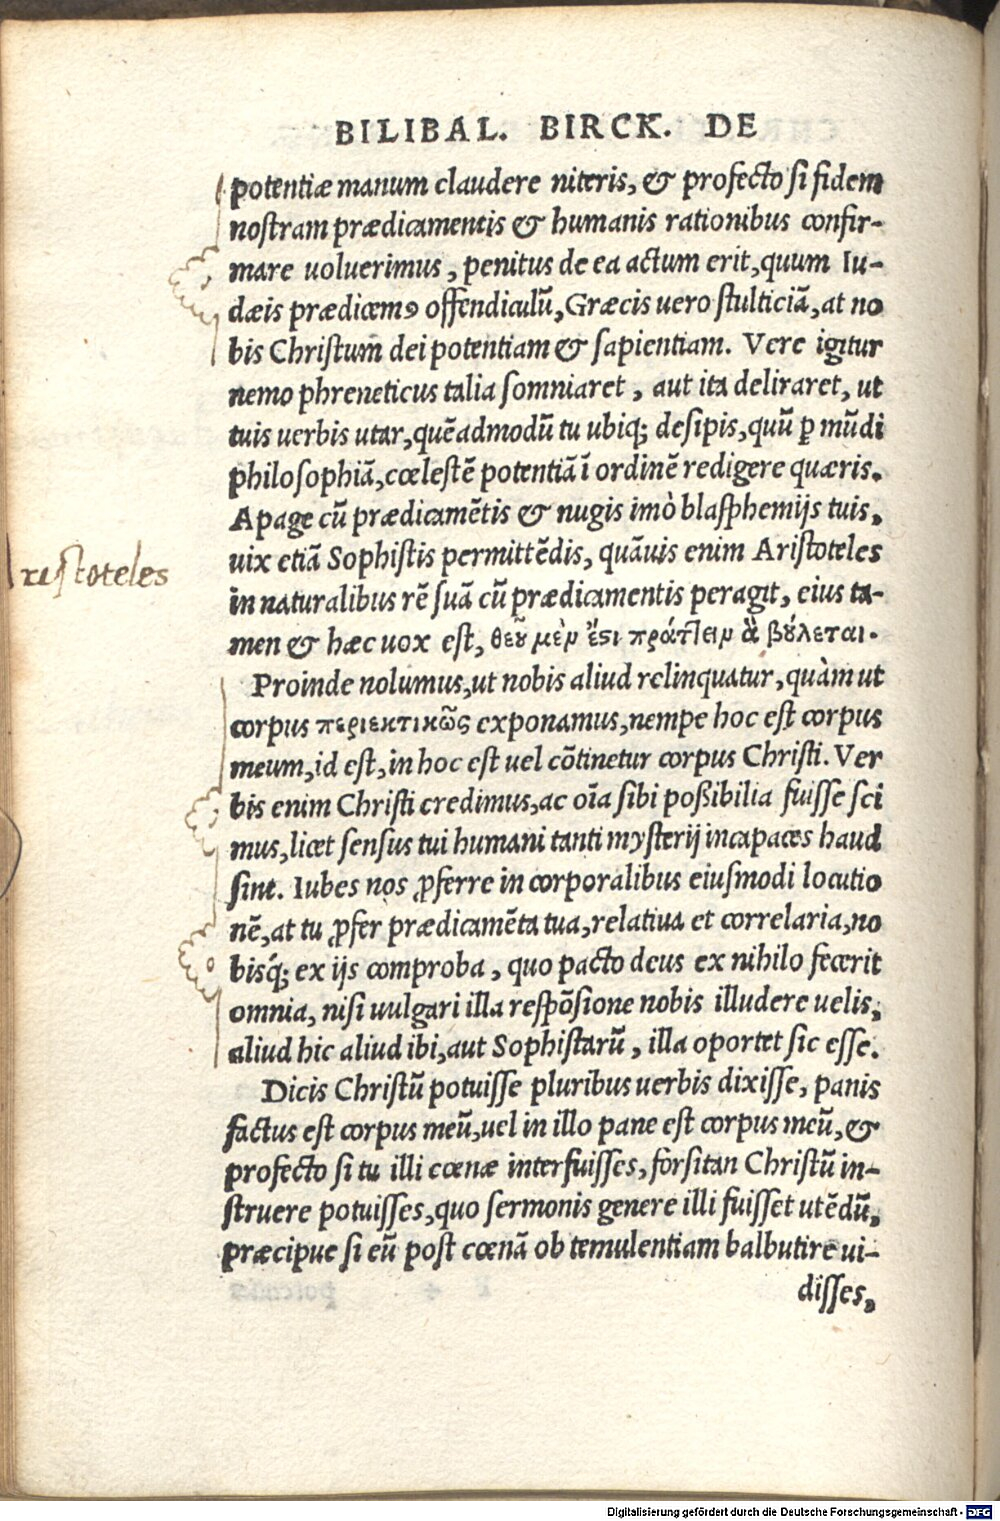 BILIBAL. BIRCK. DE
potentiæ manum claudere niteris, & profecto si fidem
nostram prædicamentis & humanis rationibus confir-
mare uoluerimus, penitus de ea actum erit, quum Iu-
dæis prædicemꝯ offendiculũ, Græcis uero stulticiã, at no
bis Christum̃ dei potentiam & sapientiam. Vere igitur
nemo phreneticus talia somniaret, aut ita deliraret, ut
tuis uerbis utar, quẽadmodũ tu ubiq; desipis, quũ ꝑ mũdi
philosophiã, cœlestẽ potentiã ĩ ordinẽ redigere quæris.
Apage cũ prædicamẽtis & nugis imò blasphemijs tuis,
uix etiã Sophistis permittẽdis, quãuis enim Aristoteles
in naturalibus rẽ suã cũ prædicamentis peragit, eius ta-
men & hæc uox est, θεοῦ μὲν ἔϛι πράτ͡τειν ἃ βούλεται.
Aristoteles
Proinde nolumus, ut nobis aliud relinquatur, quàm ut
corpus περιεκτικῶς exponamus, nempe hoc est corpus
meum, id est, in hoc est uel cõtinetur corpus Christi. Ver
bis enim Christi credimus, ac oĩa sibi poßibilia fuisse sci
mus, licet sensus tui humani tanti mysterij incapaces haud
sint. Iubes nos ꝓferre in corporalibus eiusmodi locutio
nẽ, at tu ꝓfer prædicamẽta tua, relatiua et correlaria, no
bisq́; ex ijs comproba, quo pacto deus ex nihilo fecerit
omnia, nisi uulgari illa respõsione nobis illudere uelis,
aliud hic aliud ibi, aut Sophistarũ, illa oportet sic esse.
Dicis Christũ potuisse pluribus uerbis dixisse, panis
factus est corpus meũ, uel in illo pane est corpus meũ, &
profecto si tu illi cœnæ interfuisses, forsitan Christũ in-
struere potuisses, quo sermonis genere illi fuisset utẽdũ,
præcipue si eũ post cœnã ob temulentiam balbutire ui-
disses,
Digitalisierung gefördert durch die Deutsche Forschungsgemeinschaft - DFG